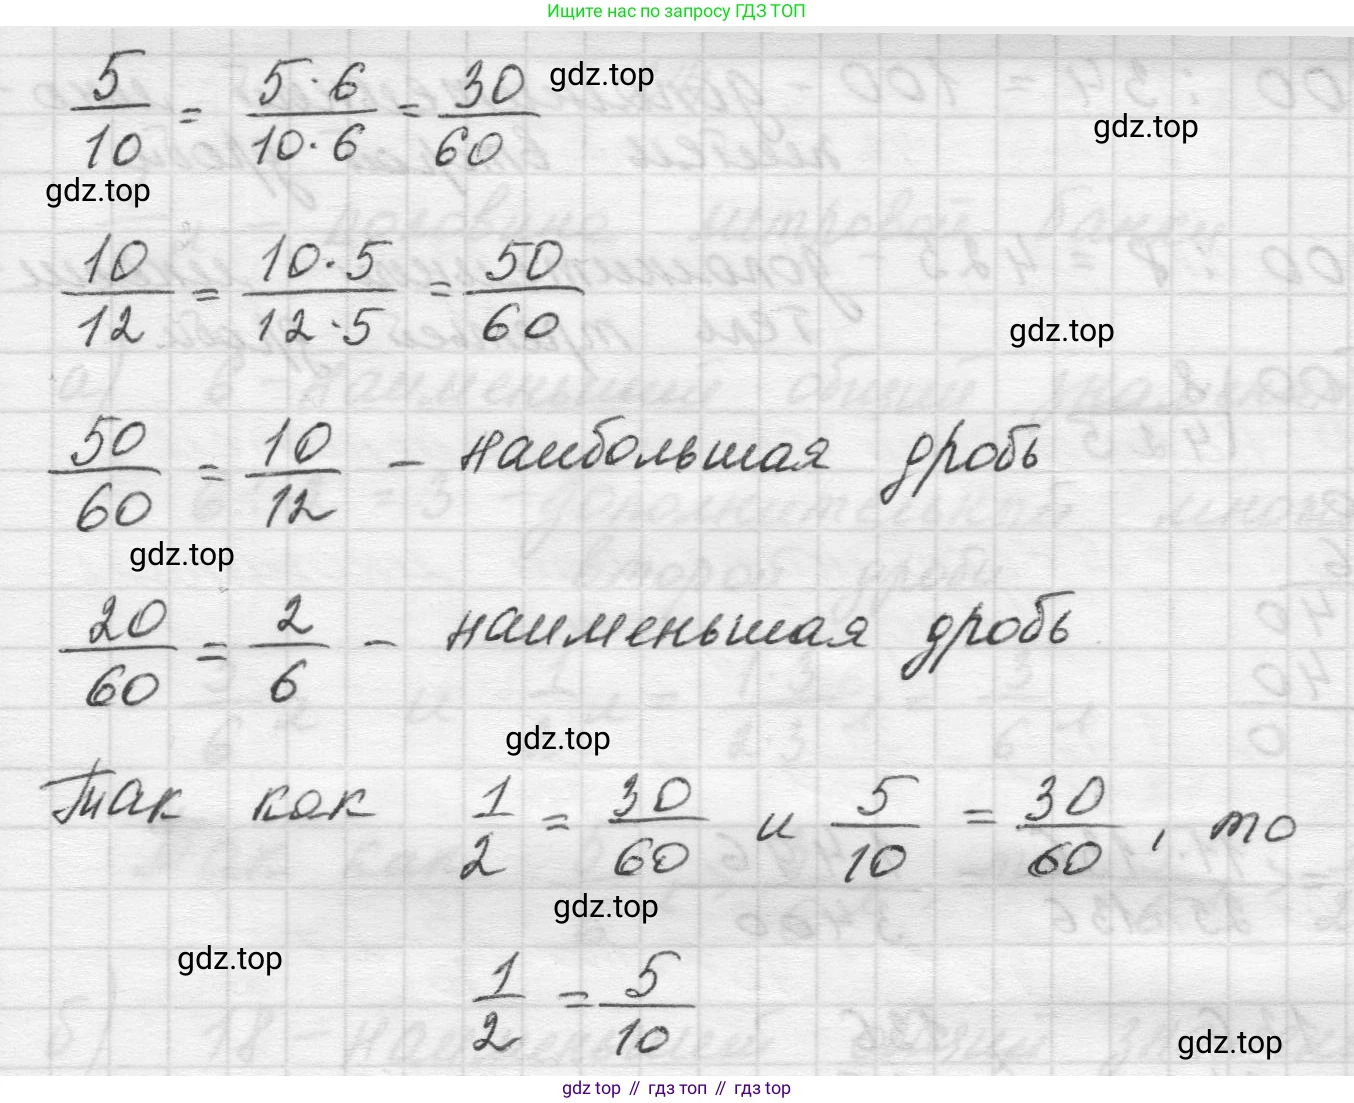 Ищите нас по запросу ГДЗ ТОП
5/10 = 5·6/10·6 = 30/60
gdz.top
gdz.top
gdz.top
10/12 = 10·5/12·5 = 50/60
gdz.top
50/60 = 10/12 - наибольшая дробь
gdz.top
20/60 = 2/6 - наименьшая дробь
gdz.top
Так как 1/2 = 30/60 и 5/10 = 30/60, то
gdz.top
gdz.top
1/2 = 5/10
gdz.top
gdz top // гдз топ // гдз top